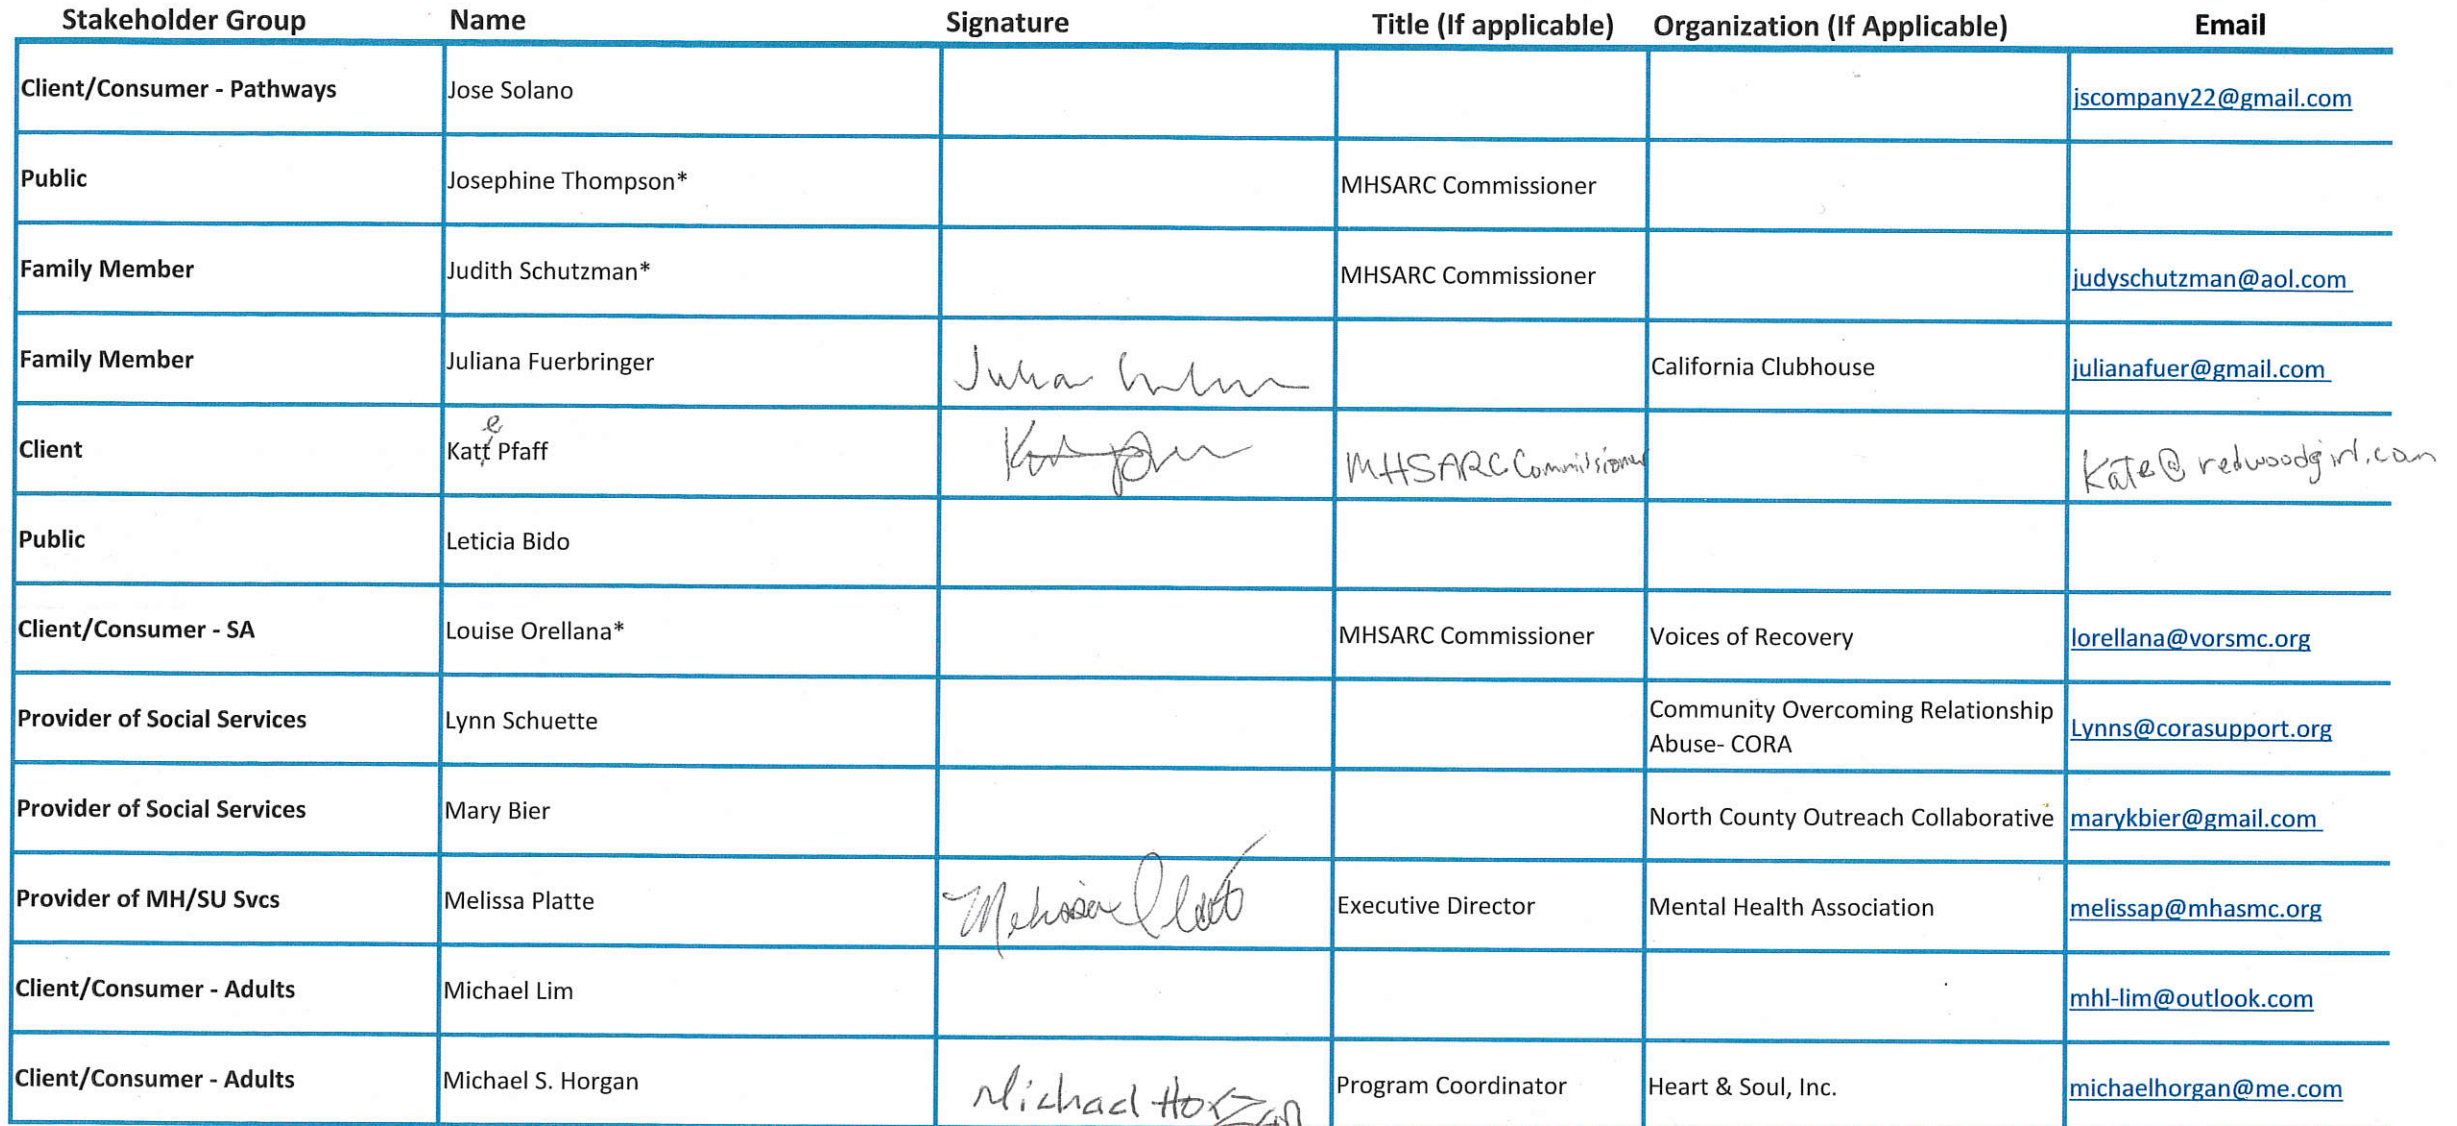 Stakeholder Group Name Signature Title (If applicable) Organization (If Applicable) Email
Client/Consumer - Pathways Jose Solano jscompany22@gmail.com
Public Josephine Thompson* MHSARC Commissioner
Family Member Judith Schutzman* MHSARC Commissioner judyschutzman@aol.com
Family Member Juliana Fuerbringer California Clubhouse julianafuer@gmail.com
e
Client Kati Pfaff MHSARC Commissioner Kate@redwoodgirl.com
Public Leticia Bido
Client/Consumer - SA Louise Orellana* MHSARC Commissioner Voices of Recovery lorellana@vorsmc.org
Provider of Social Services Lynn Schuette Community Overcoming Relationship
Abuse- CORA Lynns@corasupport.org
Provider of Social Services Mary Bier North County Outreach Collaborative marykbier@gmail.com
Provider of MH/SU Svcs Melissa Platte Melissa Platte Executive Director Mental Health Association melissap@mhasmc.org
Client/Consumer - Adults Michael Lim mhl-lim@outlook.com
Client/Consumer - Adults Michael S. Horgan Michael Horgan Program Coordinator Heart & Soul, Inc. michaelhorgan@me.com